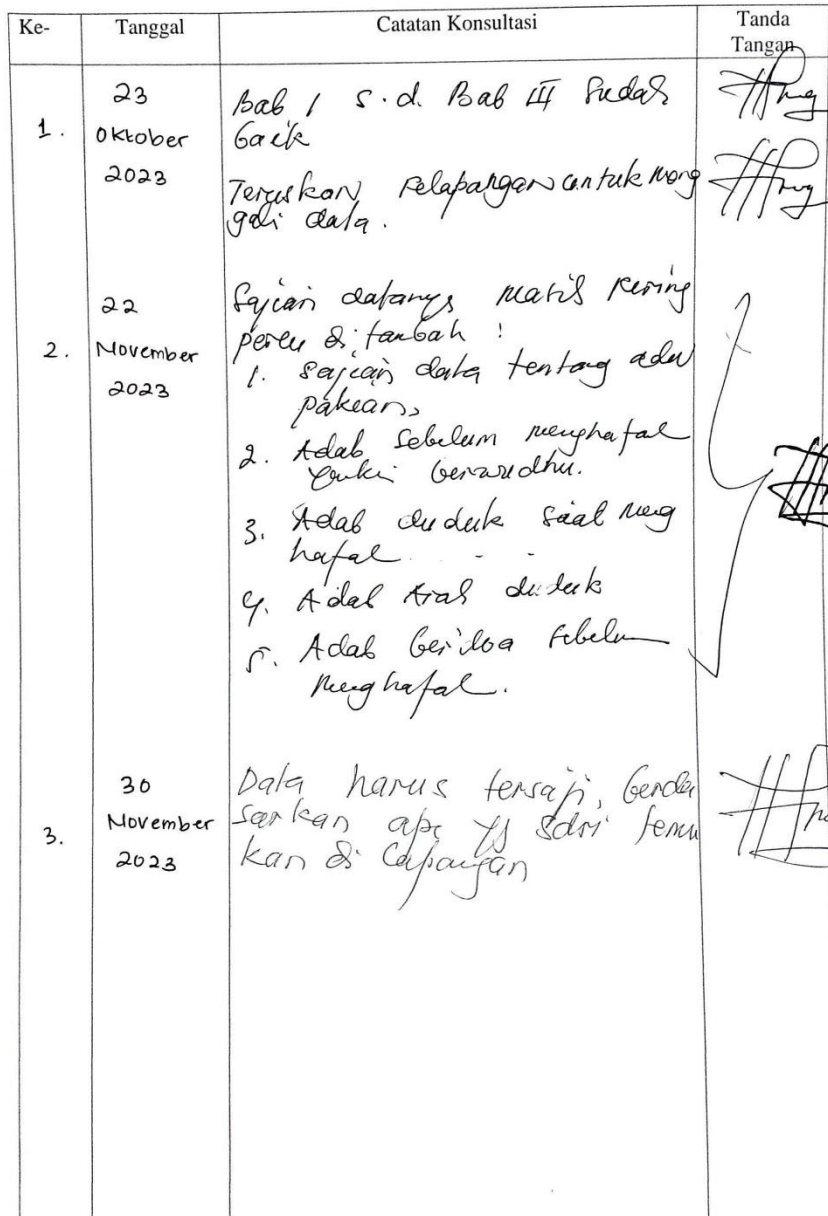 Ke-
Tanggal
Catatan Konsultasi
Tanda
Tangan
1.
23
Oktober
2023
Bab I s.d. Bab III Sudah
baik
Teruskan kelapangan untuk meng
gali data.
2.
22
November
2023
Sajian datanya masih kering
perlu ditambah :
1. Sajian data tentang adab
pakaian,
2. Adab sebelum menghafal
yakni berwudhu.
3. Adab duduk saat meng
hafal
4. Adab Arah duduk
5. Adab berdoa sebelum
menghafal.
3.
30
November
2023
Data harus tersaji, berda
sarkan apa yg sdri temu
kan di lapangan